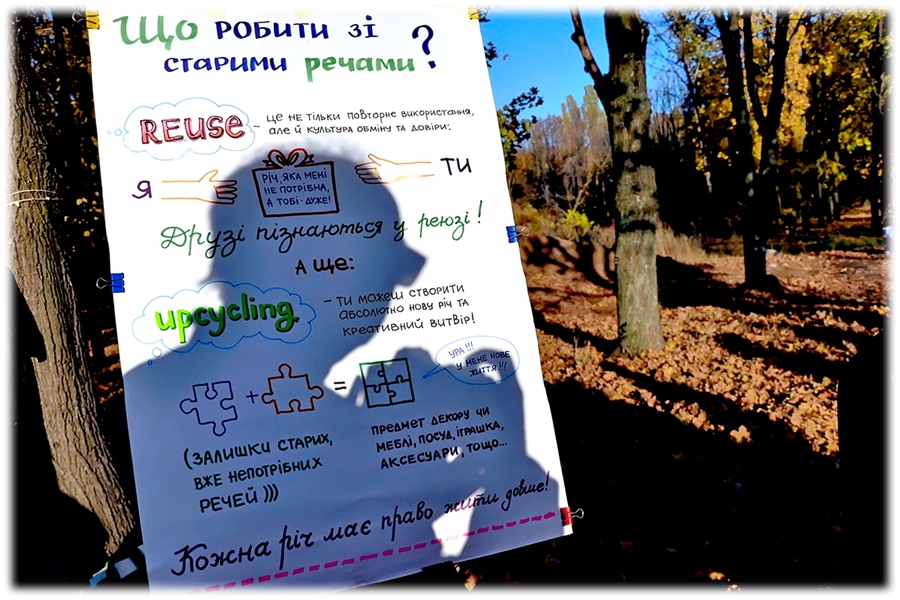 Що робити зі
старими речами?
REUSE - це не тільки повторне використання,
але й культура обміну та довіри:
Я
річ, яка мені
не потрібна,
а тобі - дуже!
ТИ
Друзі пізнаються у реюзі!
А ще:
upcycling
- ти можеш створити
абсолютно нову річ та
креативний витвір!
+
=
Ура!!!
У мене нове
життя!!!
(залишки старих,
вже непотрібних
речей)))
предмет декору чи
меблі, посуд, іграшка,
аксесуари, тощо...
Кожна річ має право жити довше!